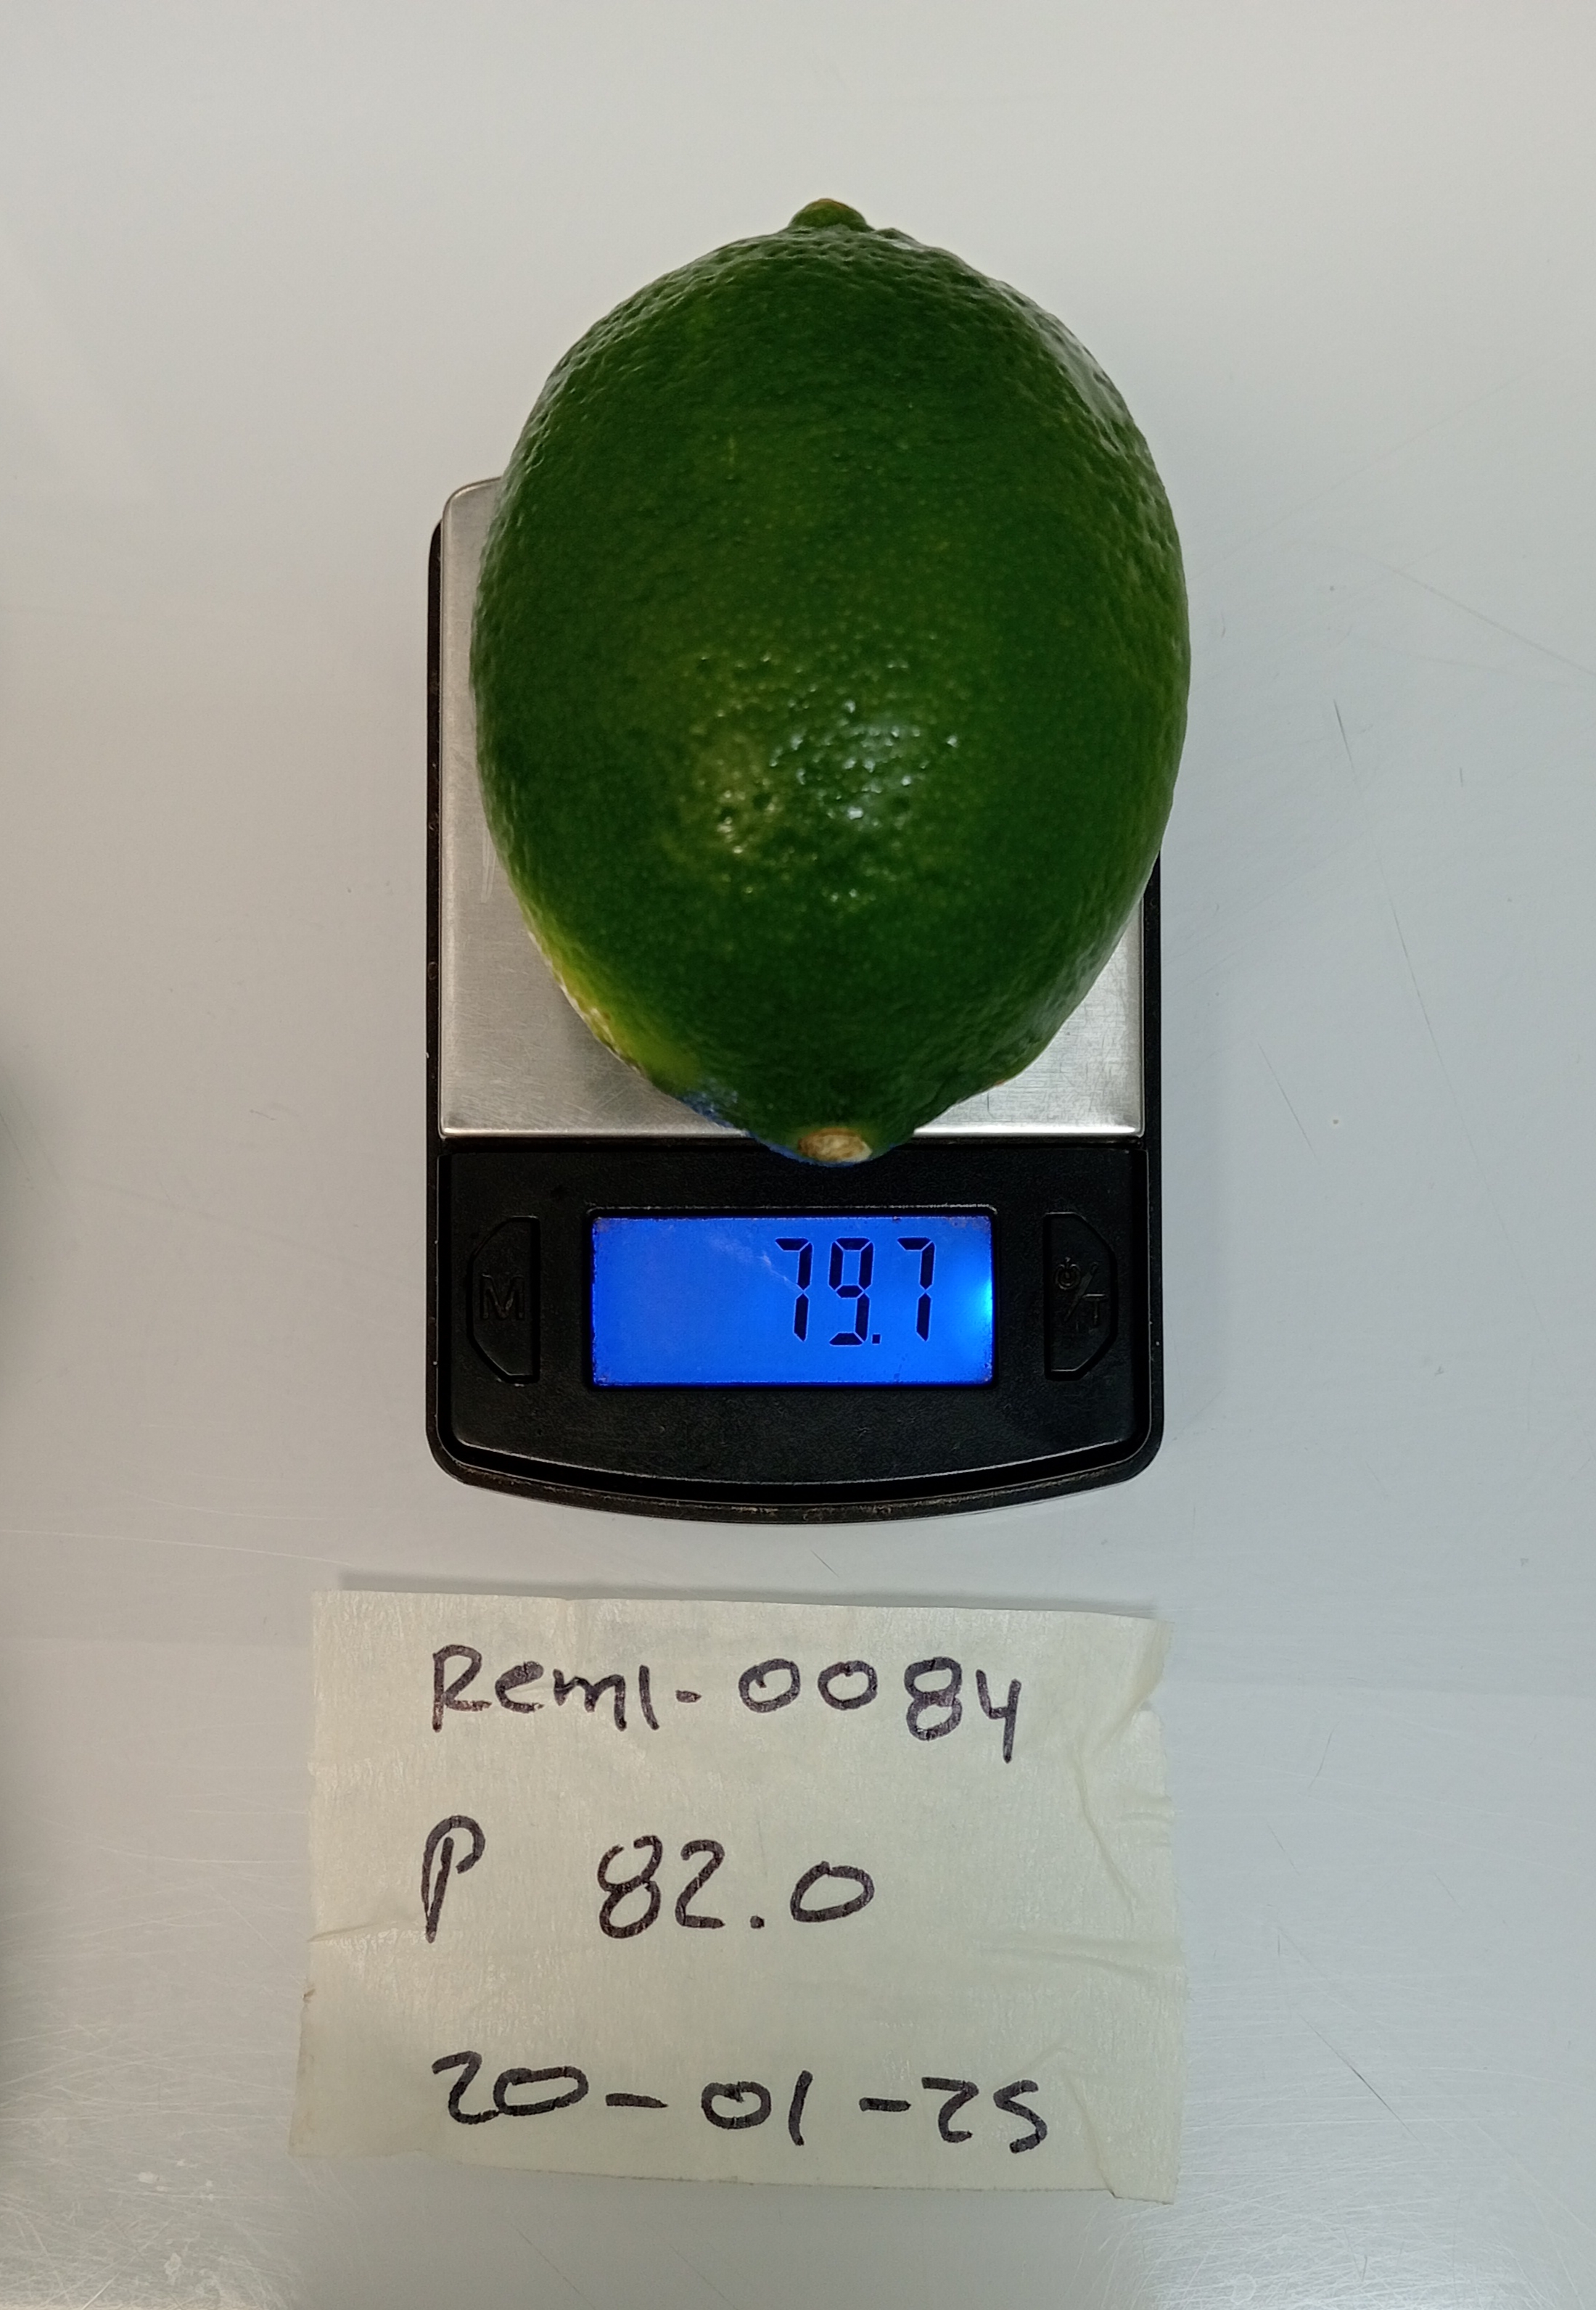 79.7
M
⏻/T
Reml-0084
P 82.0
20-01-25